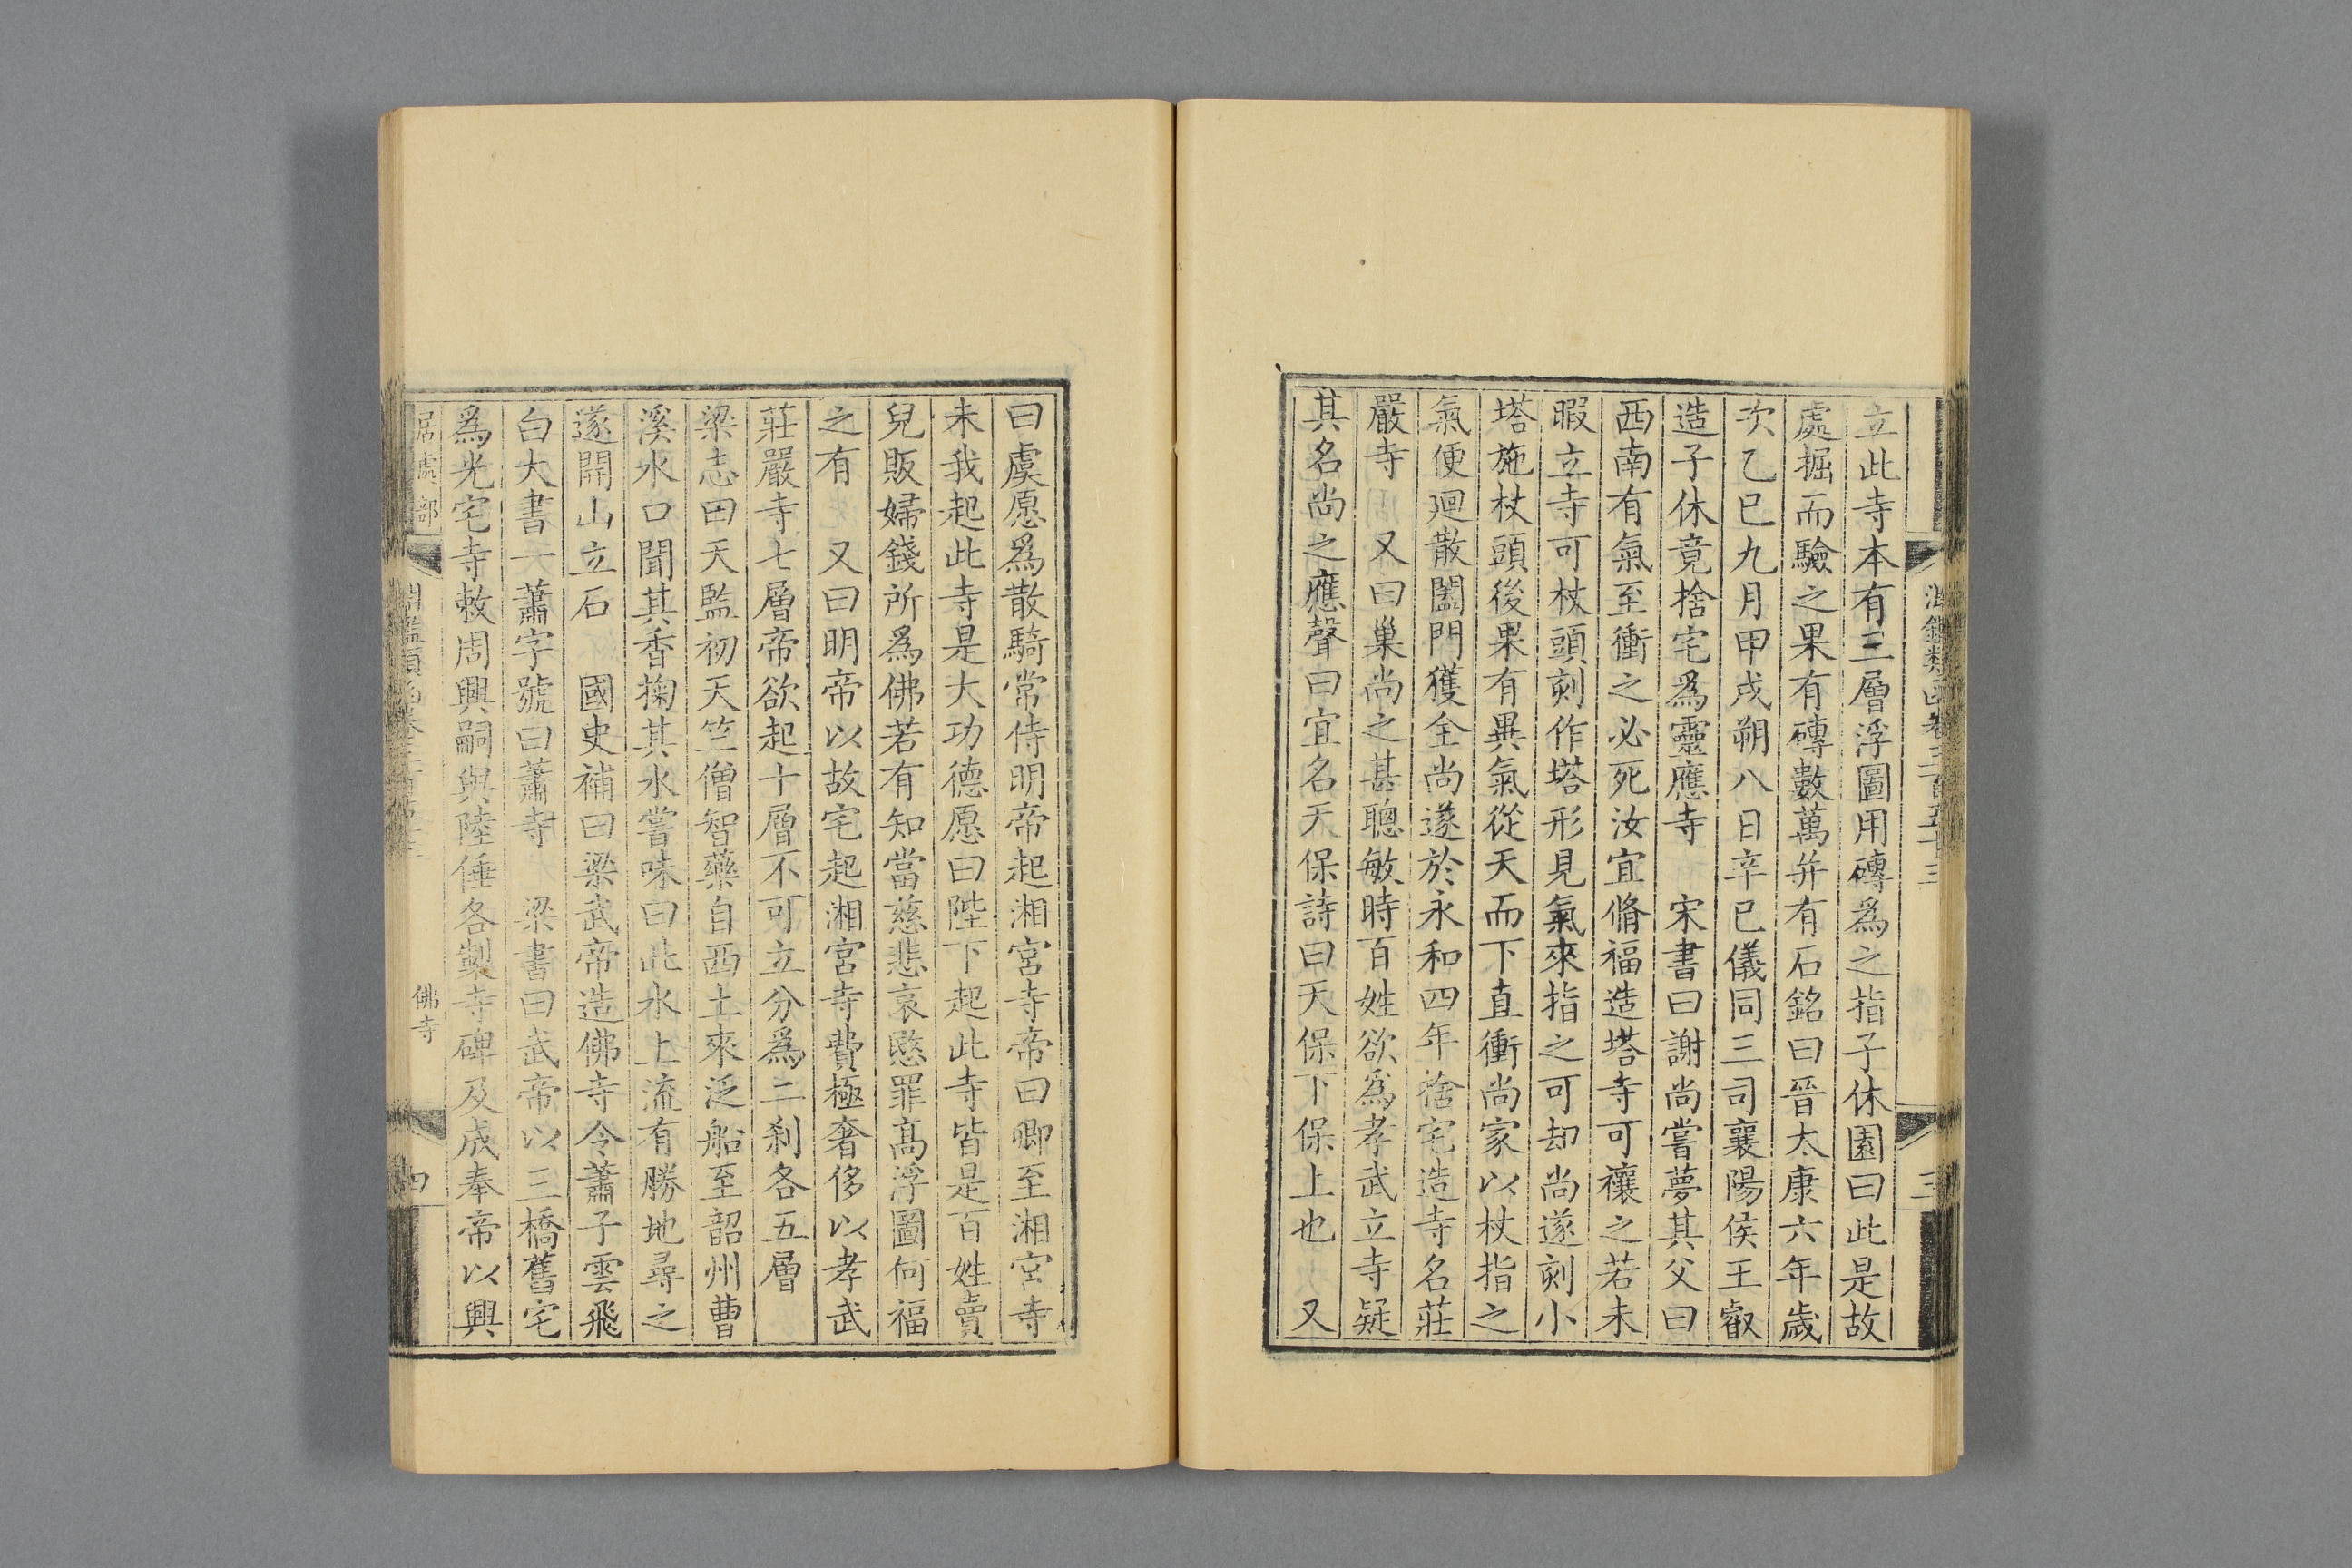 淵鑑類函卷三百五十三
三
立此寺本有三層浮圖用磚爲之指子休園曰此是故
處掘而驗之果有磚數萬并有石銘曰晉太康六年歲
次乙巳九月甲戌朔八日辛巳儀同三司襄陽侯王叡
造子休竟捨宅爲靈應寺 宋書曰謝尚嘗夢其父曰
西南有氣至衝之必死汝宜脩福造塔寺可禳之若未
暇立寺可杖頭刻作塔形見氣來指之可却尚遂刻小
塔施杖頭後果有異氣從天而下直衝尚家以杖指之
氣便廻散闔門獲全尚遂於永和四年捨宅造寺名莊
嚴寺 又曰巢尚之甚聰敏時百姓欲爲孝武立寺疑
其名尚之應聲曰宜名天保詩曰天保下保上也 又
曰虞愿爲散騎常侍明帝起湘宮寺帝曰卿至湘宮寺
未我起此寺是大功德愿曰陛下起此寺皆是百姓賣
兒販婦錢所爲佛若有知當慈悲哀愍罪高浮圖何福
之有 又曰明帝以故宅起湘宮寺費極奢侈以孝武
莊嚴寺七層帝欲起十層不可立分爲二刹各五層
梁志曰天監初天竺僧智藥自西土來泛船至韶州曹
溪水口聞其香掬其水嘗味曰此水上流有勝地尋之
遂開山立石 國史補曰梁武帝造佛寺令蕭子雲飛
白大書一蕭字號曰蕭寺 梁書曰武帝以三橋舊宅
爲光宅寺敕周興嗣與陸倕各製寺碑及成奉帝以興
居處部
淵鑑類函卷三百五十三
佛寺
四